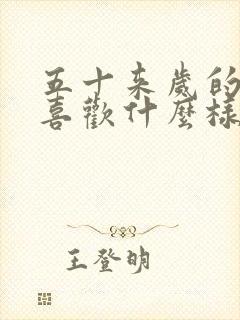 五十来歲的
喜歡什麼樣
王登明